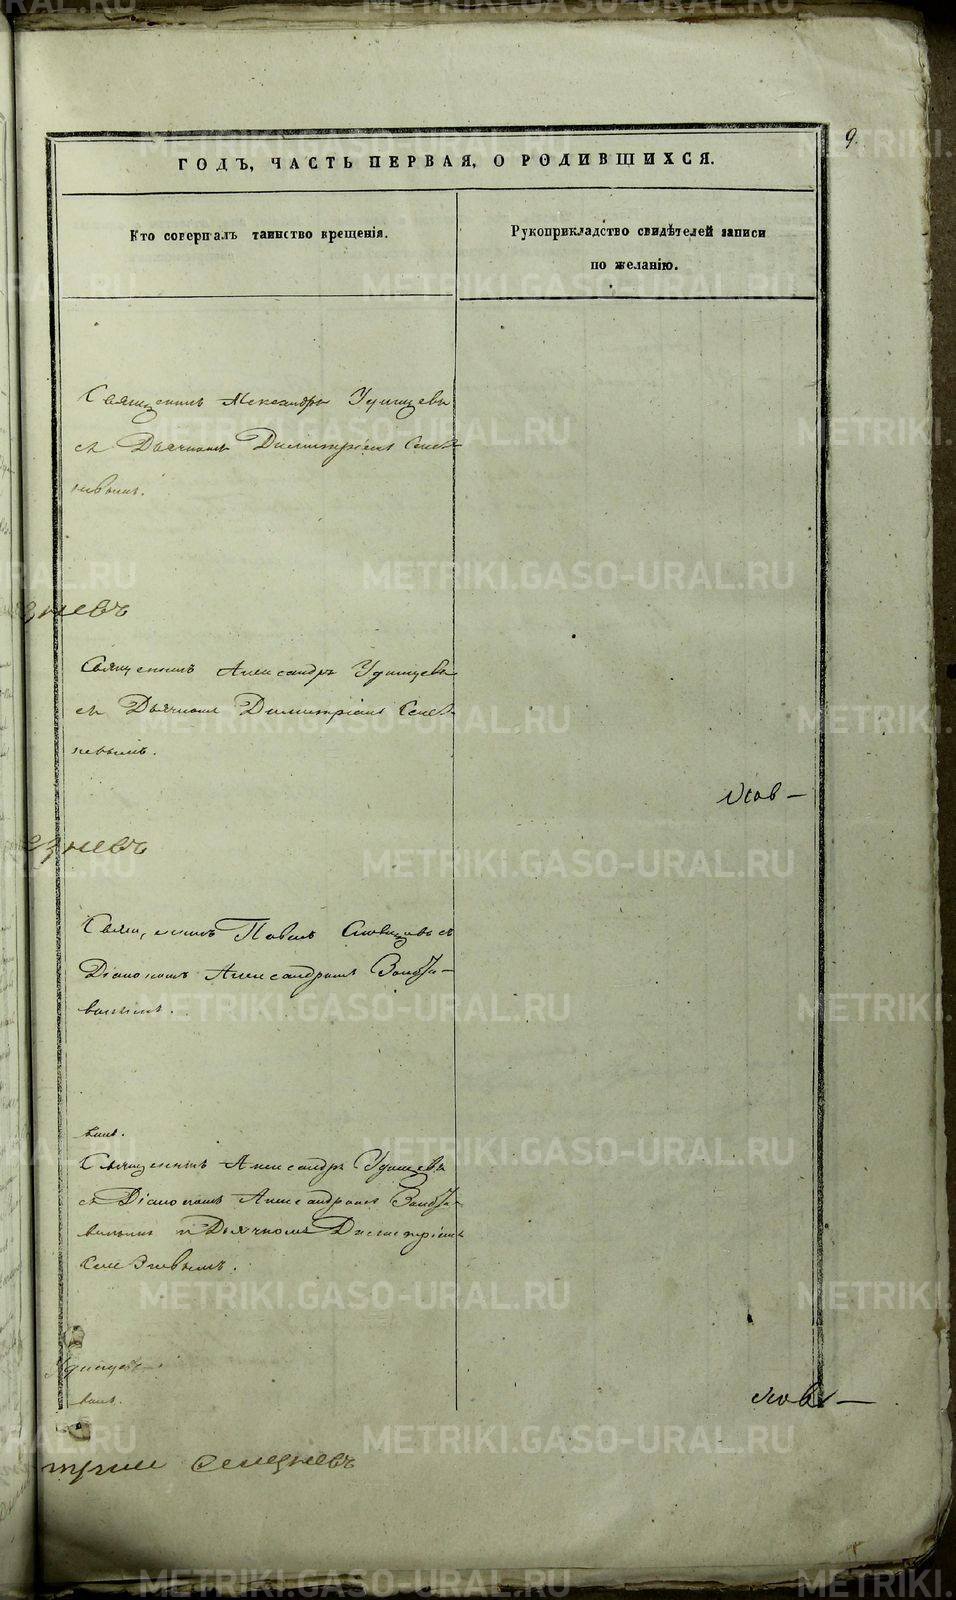 9.
ГОДЪ, ЧАСТЬ ПЕРВАЯ, О РОДИВШИХСЯ.
Кто совершалъ таинство крещенія.
Рукоприкладство свидѣтелей записи
по желанію.
Священникъ Александръ Удинцевъ
съ Дьячкомъ Димитріемъ Селез
невымъ.
зневъ
Священникъ Александръ Удинцевъ
съ Дьячкомъ Димитріемъ Селез
невымъ.
езневъ
Священникъ Павелъ съ
Діакономъ Александромъ
Священникъ Александръ Удинцевъ
съ Діакономъ Александромъ
и Дьячкомъ Димитріемъ
Селезневымъ.
Удинцевъ
трій Селезневъ
METRIKI.GASO-URAL.RU